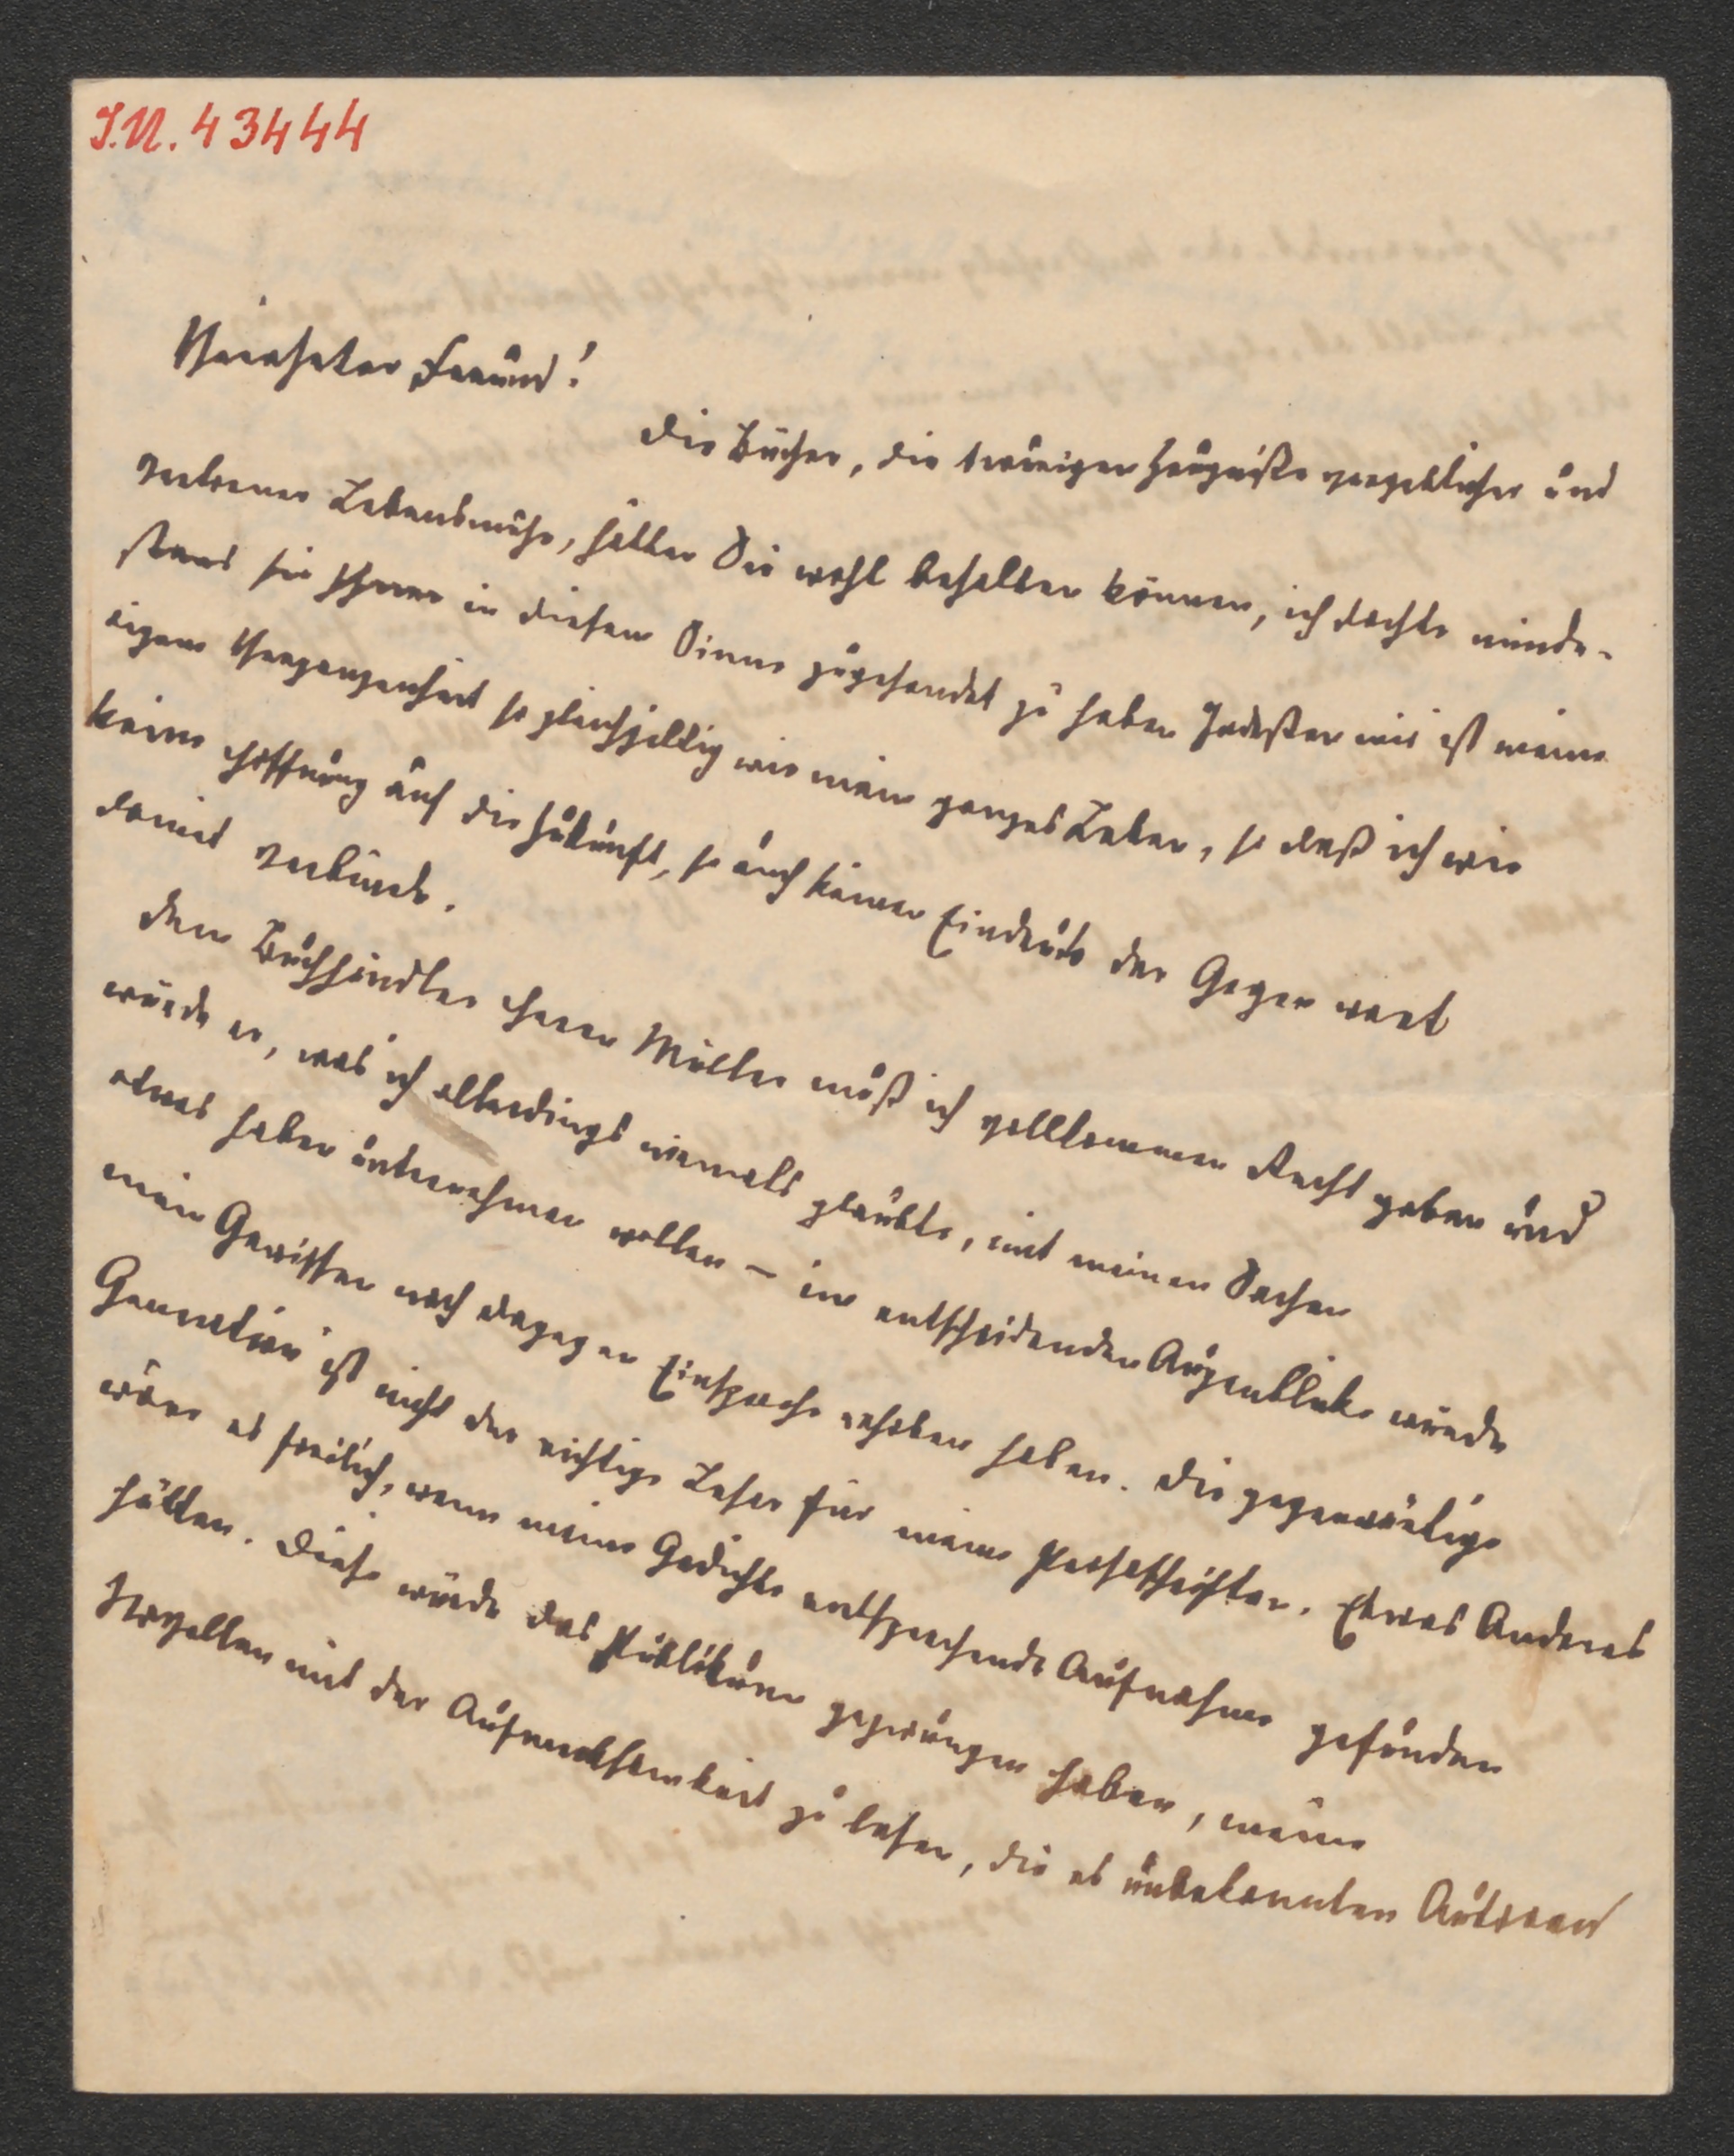 I.N. 43444
Verehrter Freund!
Die Bücher, die traurigen Zeugniße vergeblicher und
verlorner Lebensmühe, hätten Sie wohl behalten können, ich dachte minde-
stens sie Ihnen in diesem Sinne zugesendet zu haben. Indeßen mir ist meine
eigene Vergangenheit so gleichgiltig wie mein ganzes Leben, so daß ich wie
keine Hoffnung auf die Zukunft, so auch keinen Eindruck der Gegenwart
damit verbinde.
Dem Buchhändler Herrn Müller muß ich vollkommen Recht geben und
würde er, was ich allerdings niemals glaubte, mit meinen Sachen
etwas haben unternehmen wollen – im entscheidenden Augenblicke würde
mein Gewissen noch dagegen Einsprache erhoben haben. Die gegenwärtige
Generation ist nicht der richtige Leser für meine Prosaschriften. Etwas Anderes
wäre es freilich, wenn meine Gedichte entsprechende Aufnahme gefunden
hätten. Diese würde das Publikum gezwungen haben, meine
Novellen mit der Aufmerksamkeit zu lesen, die es unbekannten Autoren